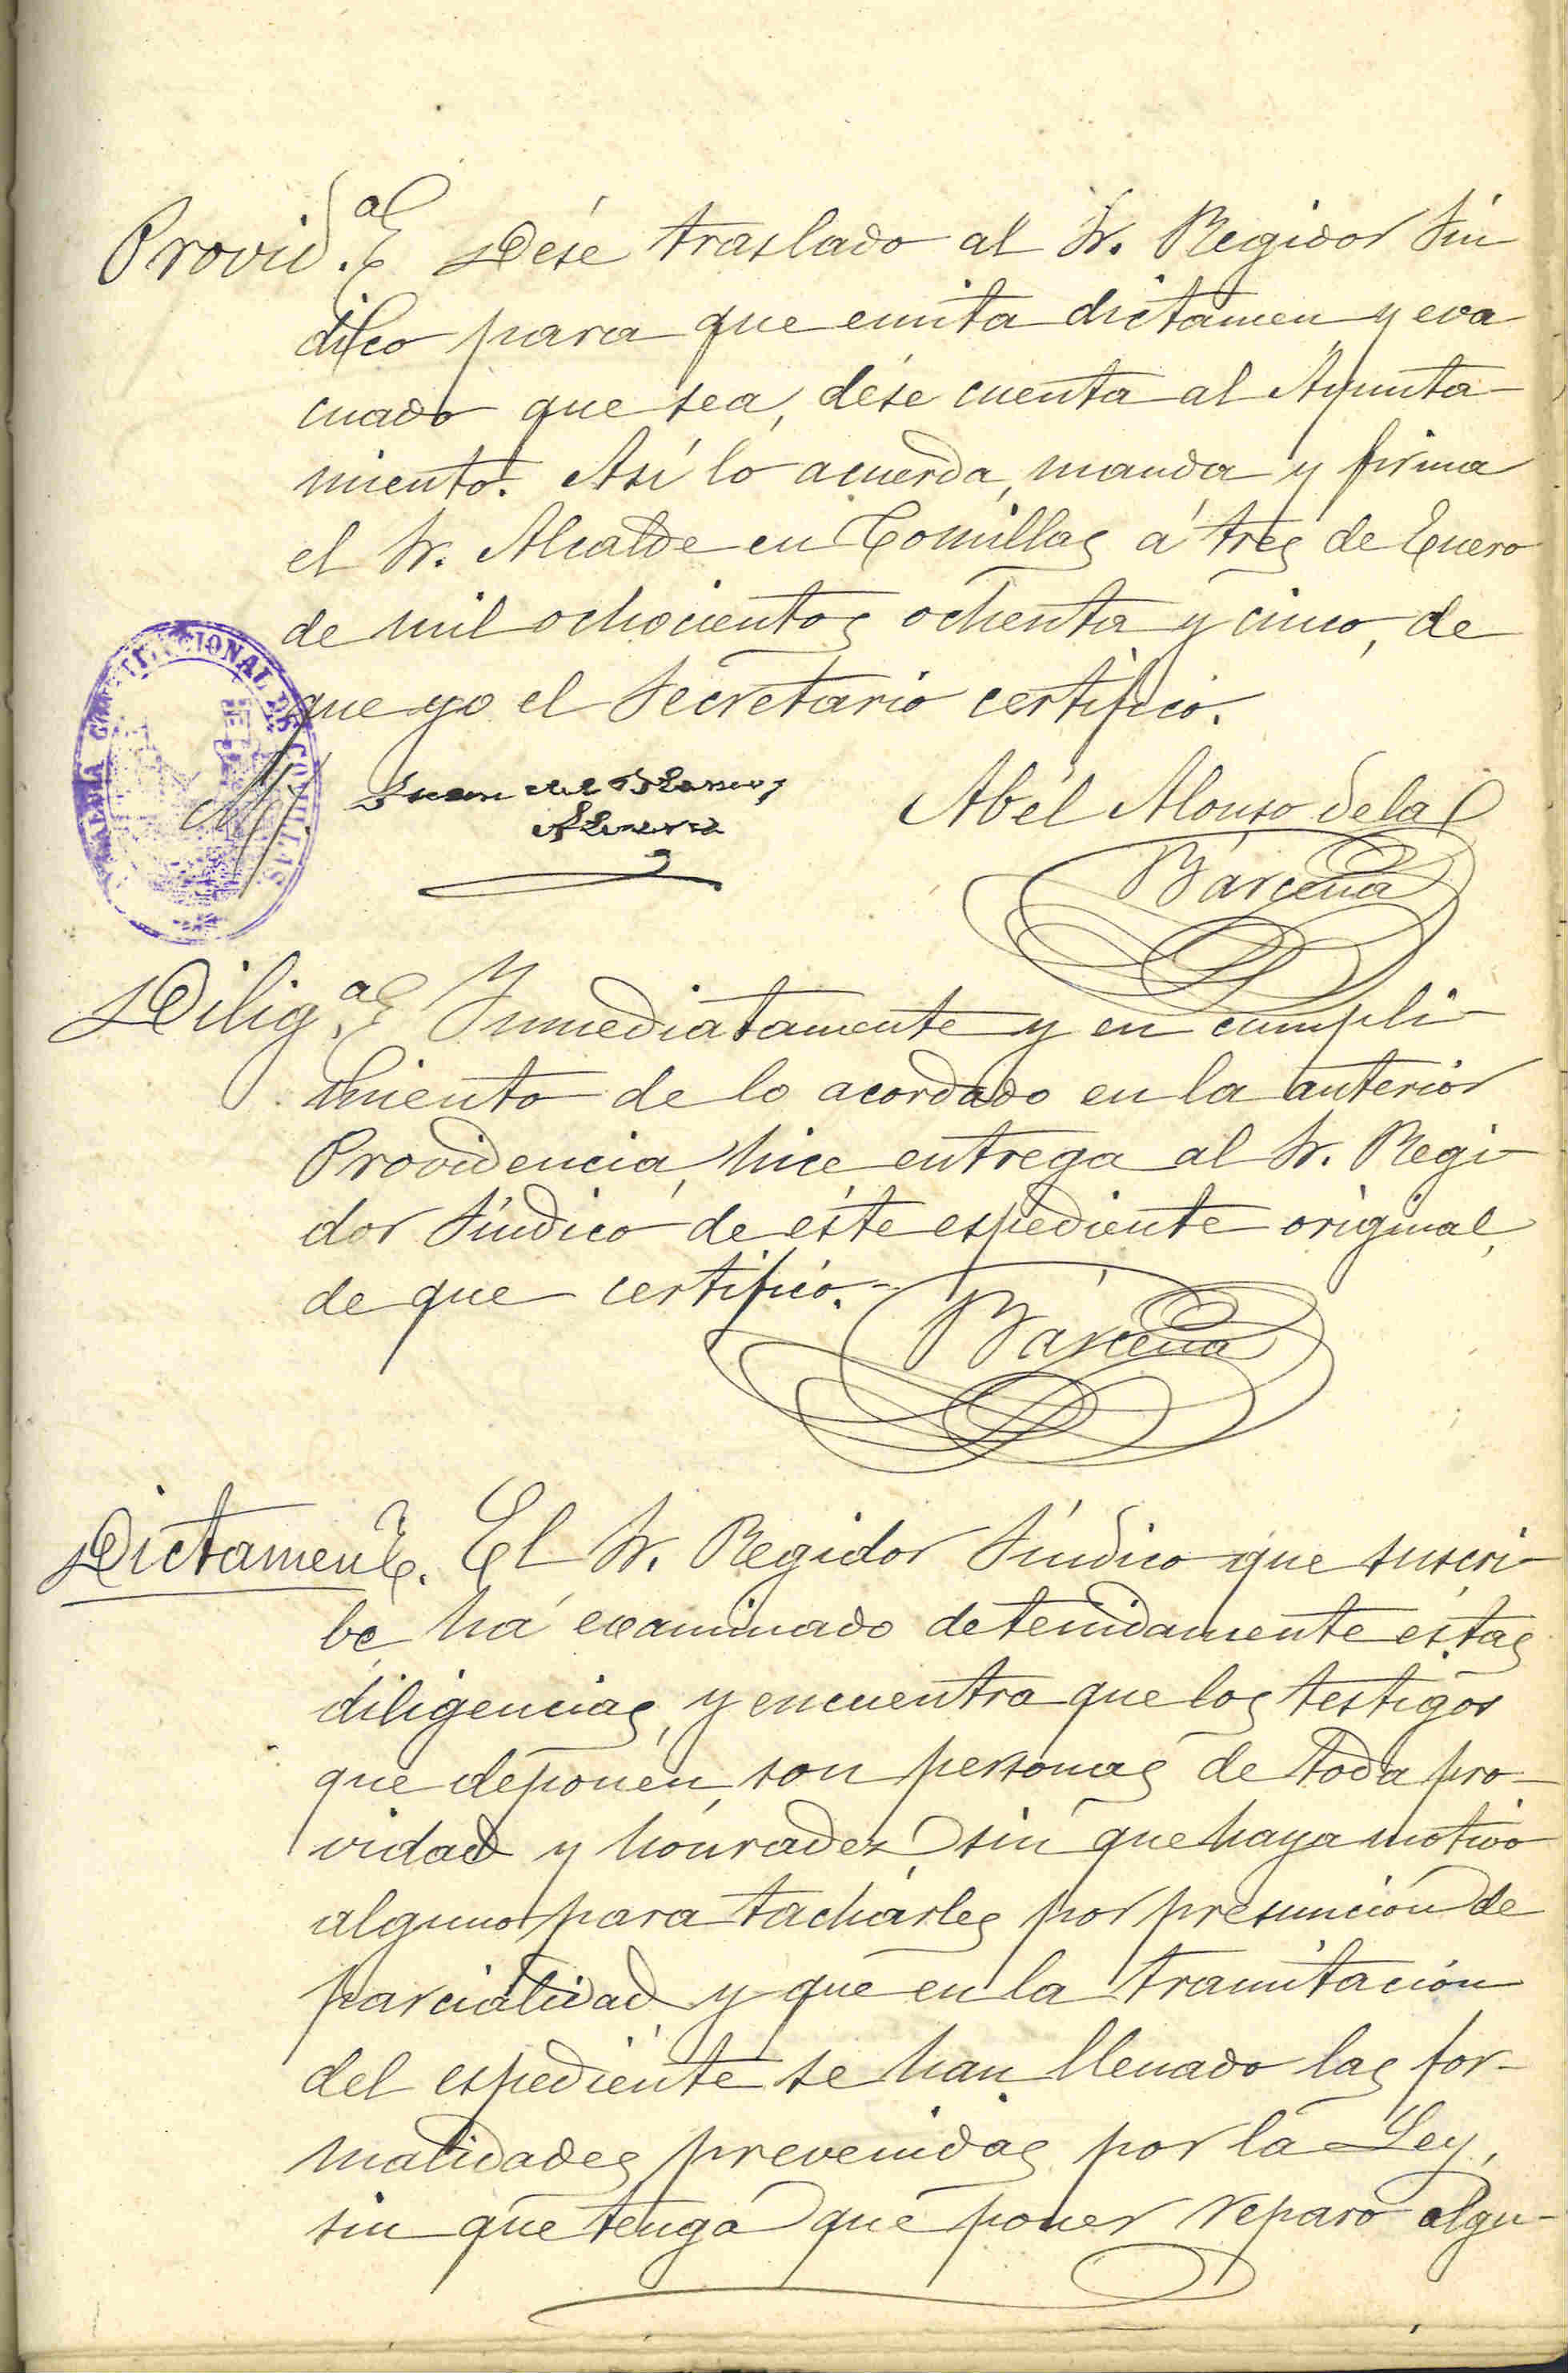 Provid.ª Dése traslado al Sr. Regidor Sín
dico para que emita dictámen y eva
cuado que sea, dése cuenta al Ayunta-
miento. Así lo acuerda, manda y firma
el Sr. Alcalde en Comillas á tres de Enero
de mil ochocientos ochenta y cinco, de
que yo el Secretario certifico.
ALCALDIA CONSTITUCIONAL DE COMILLAS
Juan del
Abél Alonso de la
Bárcena
Dilig.ª Inmediatamente y en cumpli-
miento de lo acordado en la anterior
Providencia, hice entrega al Sr. Regi-
dor Síndico de éste espediente original,
de que certifico.
Bárcena
Dictamen. El Sr. Regidor Síndico que suscri-
be, há examinado detenidamente éstas
diligencias, y encuentra que los testigos
que deponen, son personas de toda pro-
vidad y honradez, sin que haya motivo
alguno para tacharles por presunción de
parcialidad, y que en la tramitación
del espediente se han llenado las for-
malidades prevenidas por la Ley,
sin que tenga que poner reparo algu-